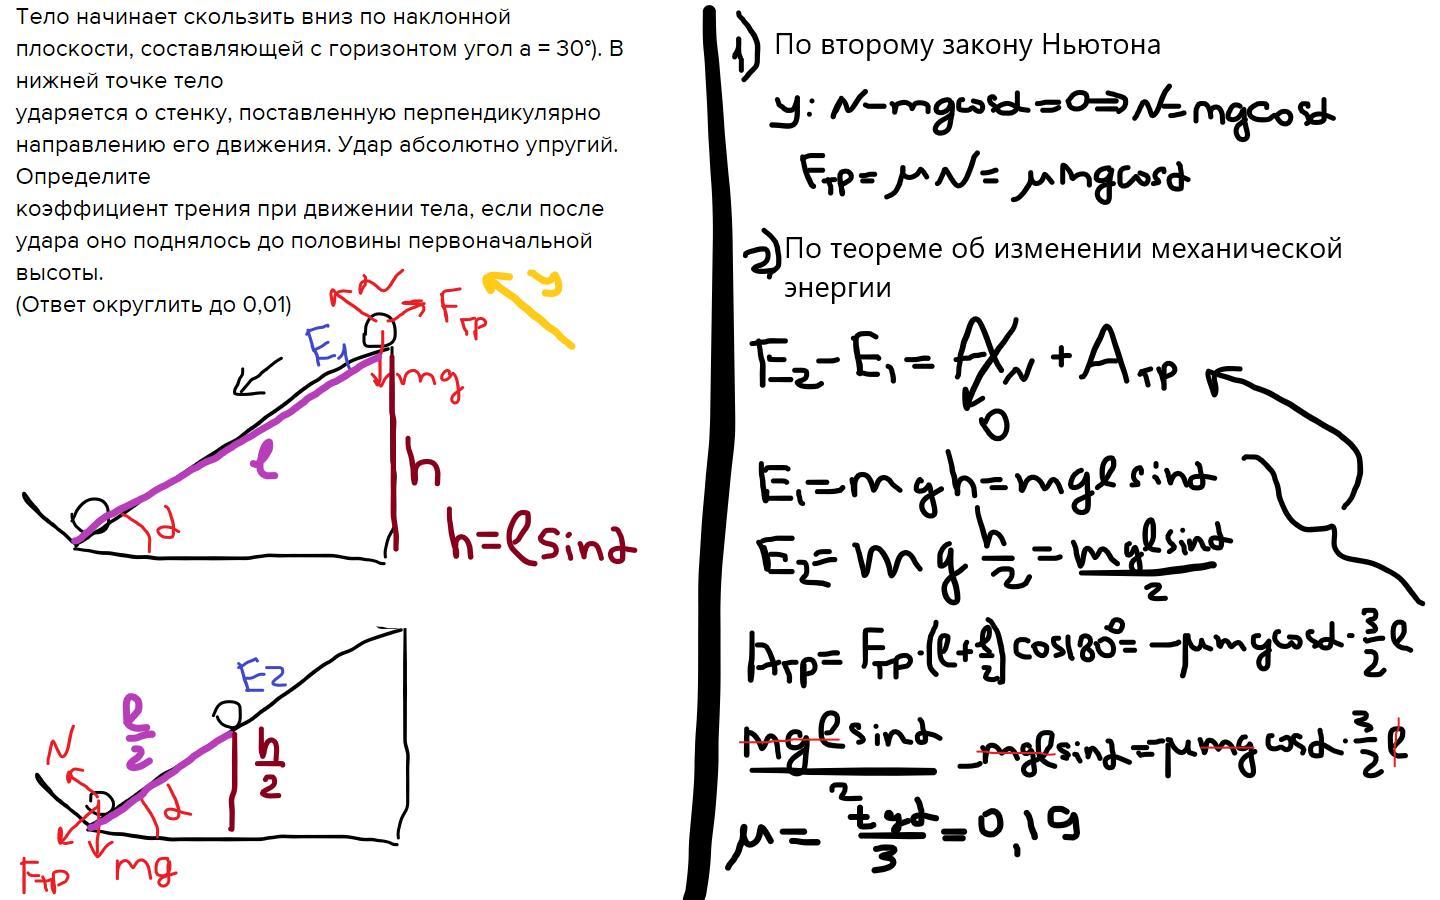 Тело начинает скользить вниз по наклонной
плоскости, составляющей с горизонтом угол a = 30°). В
нижней точке тело
ударяется о стенку, поставленную перпендикулярно
направлению его движения. Удар абсолютно упругий.
Определите
коэффициент трения при движении тела, если после
удара оно поднялось до половины первоначальной
высоты.
(Ответ округлить до 0,01)
N
Fтр
y
E₁
mg
l
h
α
h=lsinα
E2
l/2
N
h/2
α
Fтр
mg
1) По второму закону Ньютона
y: N-mgcosα=0⇒N=mgcosα
Fтр=μN=μmgcosα
2) По теореме об изменении механической
энергии
E₂-E₁=A_N+Aтр
0
E₁=mgh=mglsinα
E₂=mg h/2=mglsinα/2
Aтр=Fтр·(l+l/2)cos180°=-μmgcosα·3/2 l
mglsinα/2-mglsinα=-μmgcosα·3/2 l
μ=tgα/3=0,19